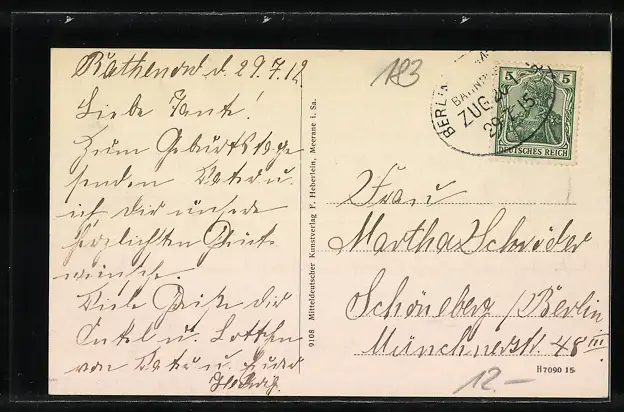 Rathenow d. 29.7.12
Liebe Tante!
Zum Geburtstage
senden Vater u.
ich dir unsere
herzlichsten Glück-
wünsche.
Viele Grüße dir
Onkel u. Lottchen
von Vater u.
Hedwig.
183
BERLIN
BAHNPOST
ZUG
29.7.15
5 5
DEUTSCHES REICH
Frau
Martha Schröder
Schöneberg / Berlin
Münchnerstr. 48 III
9108 Mitteldeutscher Kunstverlag F. Heberlein, Meerane i. Sa.
H7090 15
12.—